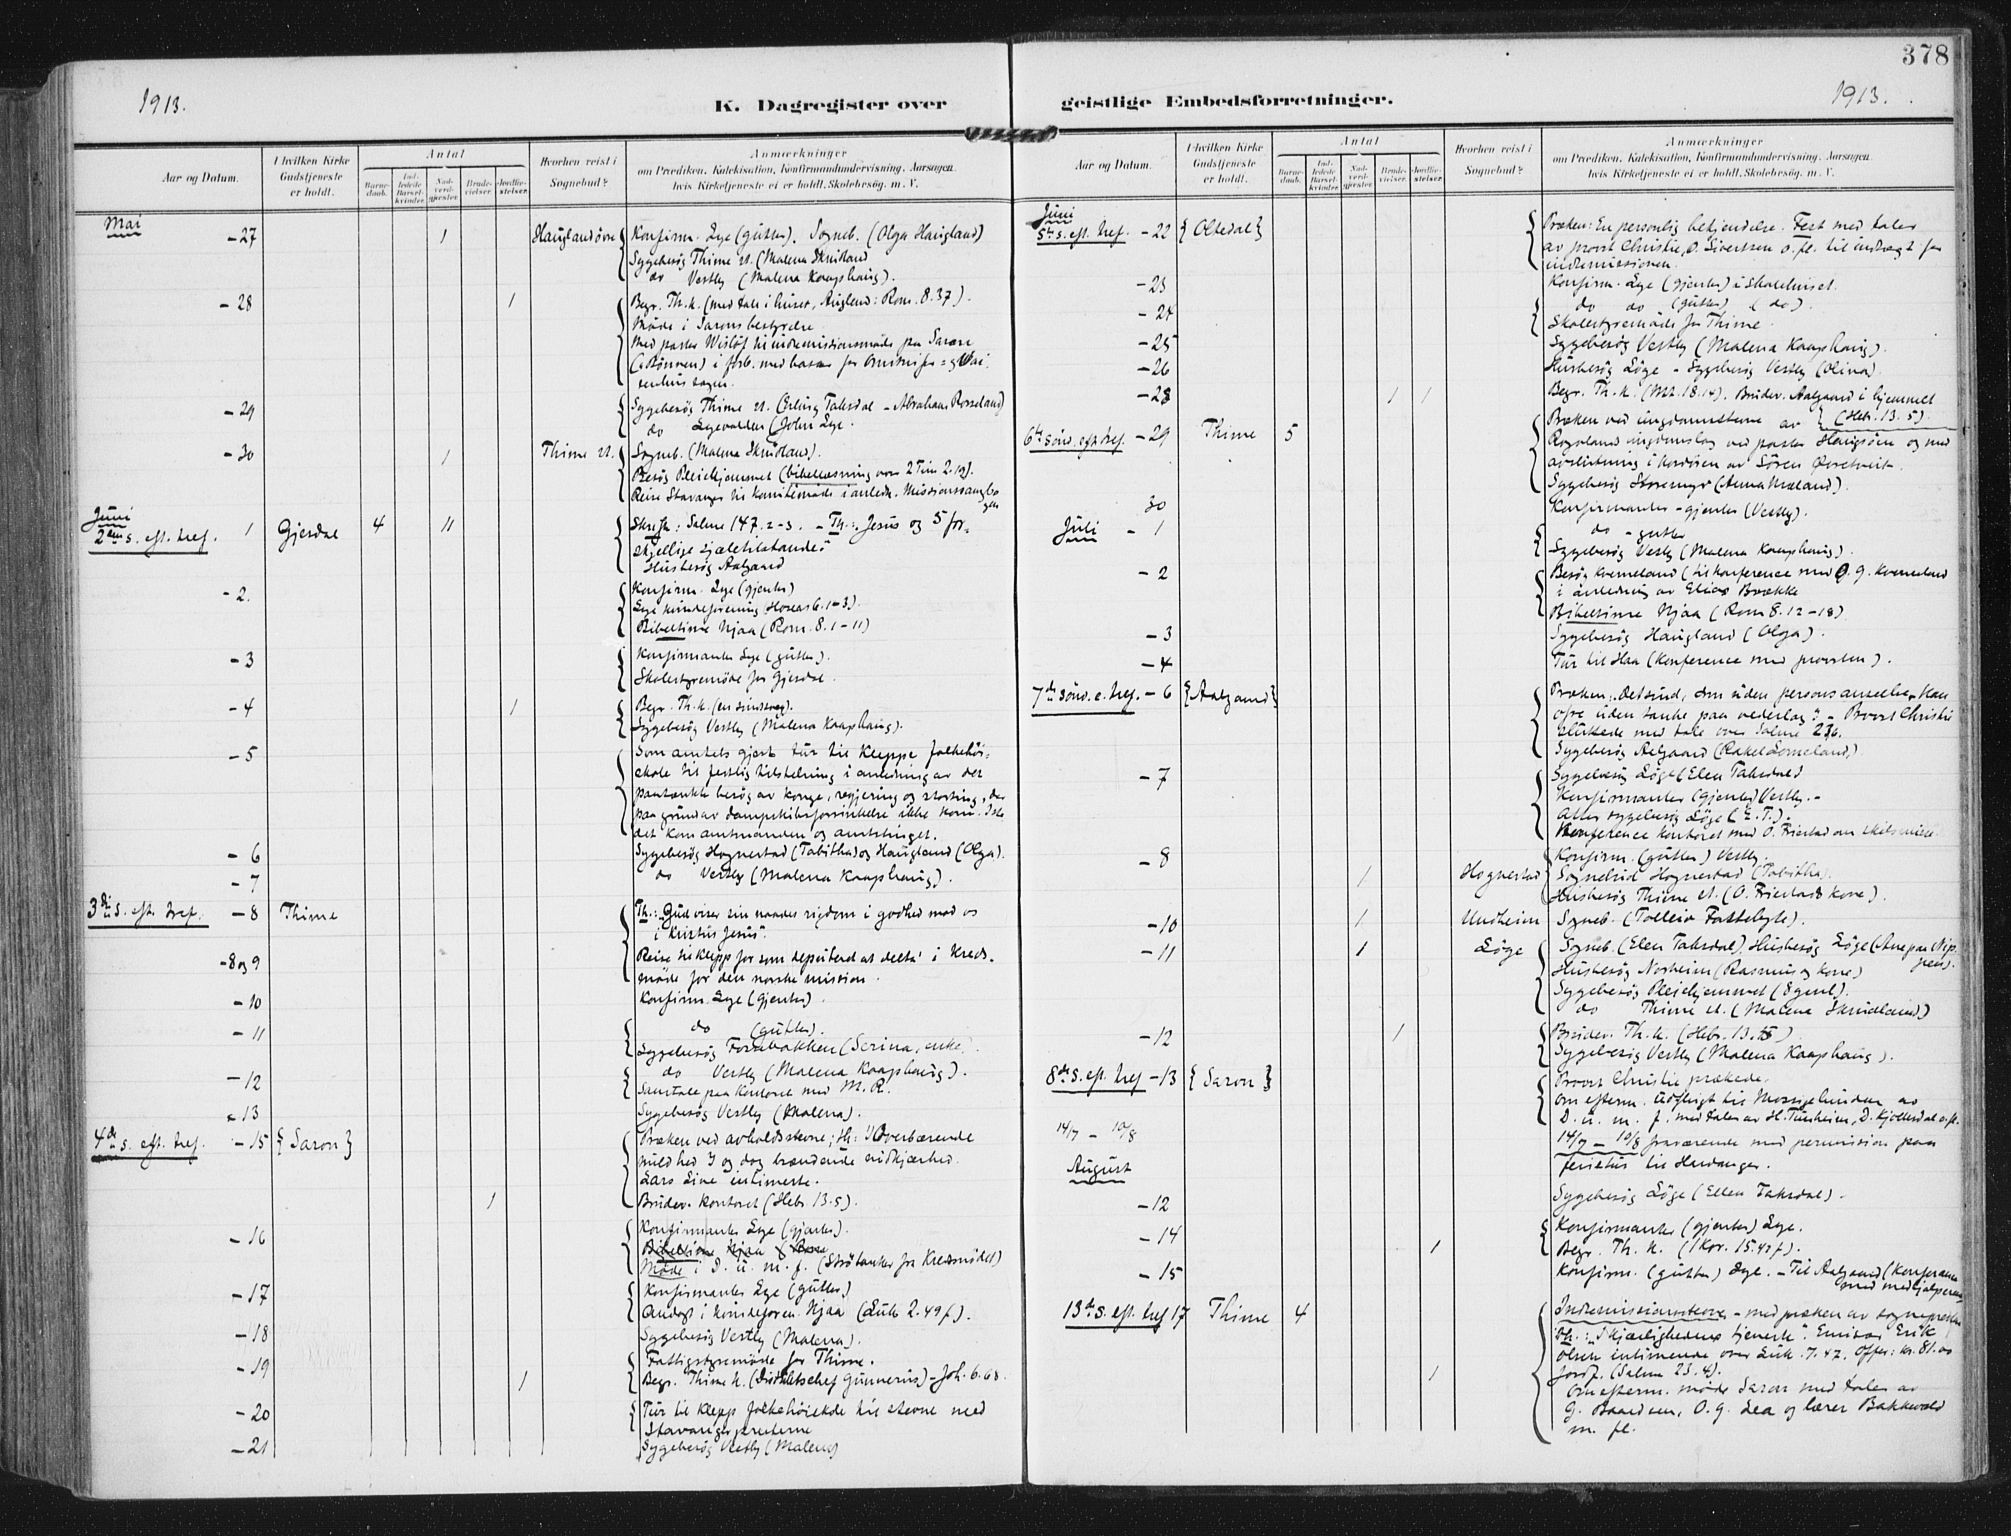 378
1913.
K. Dagregister over
geistlige Embedsforretninger.
1913.
Aar og Datum.
I hvilken Kirke Gudstjeneste er holdt.
Antal
Barnedaab.
Indledede Barselkvinder.
Nadverdgjæster.
Brudevielser.
Jordfæstelser.
Hvorhen reist i Sognebud?
Anmærkninger
om Prædiken, Katekisation, Konfirmandundervisning, Aarsagen,
hvis Kirketjeneste ei er holdt, Skolebesøg, m. V.
Mai
- 27 1 Hauglandsøre Konfirm. Lye (gutter). Sogneb. (Olga Haugland)
Sygebesøg Thime st. (Malena Skudland
do Vestly (Malena Kaaphaug).
- 28 1 Begr. Th. k. (med tale i huset, Augland: Rom. 8.37).
Møde i Sarons bestyrelse.
Med pastor Wisløf til indremissionsmøde paa Saron
i forb. med basar for
- 29 Sygebesøg Thime st. (Erling Taksdal - Abraham Rosseland)
do Lyevolden (John Lye.
- 30 1 Thime st. Sogneb. (Malena Skudland).
Besøg Pleiehjemmet (bibellæsning over 2 Tim 2.19).
Reise Stavanger til komitemøde i anledn. Missionssangbogen
Juni
2den s. eft. tref. 1 Gjesdal 4 11 Skrift: Salme 147.2-3. - Th.: Jesus og 5 for-
skjellige sjæletilstande"
Husbesøg Aalgaard
- 2. Konfirm. Lye (gjenter)
Lye kvindeforening (Hoseas 6.1-3).
Bibeltime Njaa (Rom. 8.1-11)
- 3 Konfirmanter Lye (gutter).
Skolestyremøde for Gjesdal.
- 4 1 Begr. Th. k. (en sindssyg).
Sygebesøg Vestly (Malena Kaaphaug).
- 5 Som amtets gjest tur til Kleppe folkehøi-
skole til festlig tilstelning i anledning av det
paatænkte besøg av konge, regjering og storting, der
paa grund av dampskibsforsinkelse ikke kom. Iste-
det kom amtmanden og amtstinget.
- 6 Sygebesøg Hognestad (Tabitha) og Haugland (Olga).
- 7 do Vestly (Malena Kaaphaug).
3die s. eft. tref. - 8 Thime Th.: Gud viser sin naades rigdom i godhed mod os
i Kristus Jesus".
- 8 og 9 Reise til Klepp for som deputeret at delta i Kreds-
møde for den norske mission.
- 10 Konfirm. Lye (gjenter).
- 11 do (gutter).
Sygebesøg Fossbakken (Serina, enke).
- 12 do Vestly (Malena Kaaphaug).
Samtale paa kontoret med M. R.
- 13 Sygebesøg Vestly (Malena).
4de s. eft. tref. - 15 {Saron} Præken ved avholdsstevne; th: "Overbærende
mildhed og dog brændende nidkjærhed.
Lars Line intimerte.
1 Brudev. kontoret (Hebr. 13.5).
- 16 Konfirmanter Lye (gjenter).
Bibeltime Njaa (Rom
Møde i I. u. m. f. (Strøtanker fra Kredsmødet)
- 17 Konfirmanter Lye (gutter)
Andagt i kvindeforen. Njaa (Luk. 2.49 f.).
- 18 Sygebesøg Vestly (Malena).
- 19 Fattigstyremøde for Thime.
1 Begr. Thime k. (Distriktschef Gunnerius) - Joh. 6.68.
- 20 Tur til Klepp folkehøiskole til stevne med
Stavanger presterne
- 21 Sygebesøg Vestly (Malena)
Aar og Datum.
I hvilken Kirke Gudstjeneste er holdt.
Antal
Barnedaab.
Indledede Barselkvinder.
Nadverdgjæster.
Brudevielser.
Jordfæstelser.
Hvorhen reist i Sognebud?
Anmærkninger
om Prædiken, Katekisation, Konfirmandundervisning, Aarsagen,
hvis Kirketjeneste ei er holdt, Skolebesøg, m. V.
Juni
5te s. eft. tref. - 22 {Oltedal} Præken: En personlig bekjendelse. Fest med taler
av provst Christie, O. Sivertsen o. fl. til indtægt for
indremissionen.
- 23 Konfirm. Lye (gjenter) i skolehuset.
- 24 do do (gutter) (do).
Skolestyremøde for Thime.
- 25 Sygebesøg Vestly (Malena Kaaphaug).
- 26 Husbesøg Løge - Sygebesøg Vestly (Olina)
- 28 1 1 Begr. Th. k. (Mt. 18.14). Brudev. Aalgaard i hjemmet
(Hebr. 13.5).
6te sønd. eft. tref. - 29 Thime 5 Præken ved ungdomsstevne av
Rogaland ungdomslag ved pastor Haugsøen og med
avslutning i kordøren av Søren Øvretveit.
Sygebesøg Storemyr (Anna Mæland).
30 Konfirmanter - gjenter (Vestly).
Juli - 1 do - gutter
Sygebesøg Vestly (Malena Kaaphaug).
- 2 Besøg Kverneland (til konference med O. G. Kverneland
i anledning av Elias Brække
Bibeltime Njaa (Rom 8.12-18)
- 3 Sygebesøg Haugland (Olga).
- 4 Tur til Haa (Konference med provsten).
7de sønd. e. tref. - 6 {Aalgaard} Præken: Det sind, som uden persons anseelse kan
ofre uden tanke paa vederlag". - Provst Christie
sluttede med tale over Salme 236.
Sygebesøg Aalgaard (Rakel Lomeland).
- 7 Sygebesøg Løge (Elen Taksdal)
Konfirmanter (gjenter) Vestly. -
Atter sygebesøg Løge (E. T.).
Konference kontoret med O. Fristad om skilsmisse.
- 8 Konfirm. (gutter) Vestly.
1 Hognestad Sognebud Hognestad (Tabitha).
Husbesøg Thime st. (O. Fristads kone).
- 10 1 Undheim Sogneb. (Tolleiv Fattebyte).
- 11 1 Løge Sogneb. (Elen Taksdal). Husbesøg Løge (Ane paa Nip-
pen).
Husbesøg Norheim (Rasmus og kone)
Sygebesøg Pleiehjemmet (8 gml).
do Thime st. (Malena Skudland)
- 12 1 Brudev. Th. k. (Hebr. 13.
Sygebesøg Vestly (Malena Kaaphaug).
8de s. eft. tref - 13 {Saron} Provst Christie prækede.
Om efterm. utflugt til Mossigelunden av
D. u. m. f. med taler av H. Tunheim, D. Kjøllesdal o. fl.
14/7 - 10/8 14/7 - 10/8 fraværende med permission paa
ferietur til Hardanger.
August
- 12 Sygebesøg Løge (Ellen Taksdal).
- 14 Konfirmanter (gjenter) Lye.
1 Begr. Th. k. (1 Kor. 15.42 f.).
- 15 Konfirm. (gutter) Lye. - Til Aalgaard (Konferance
med medhjælperne
13de s. eft. tref 17 Thime 4 Indremissionsstevne - med præken av sognepresten
th.: "I kjærlighedens tjeneste". Emissær Erik
Olsen intimerende over Luk. 7.47. Offer: kr. 81.00
1 Jordf. (Salme 23.4).
Om efterm. møde Saron med taler av
G. Baardsen, O. G. Lea og lærer Bakkevold
m. fl.